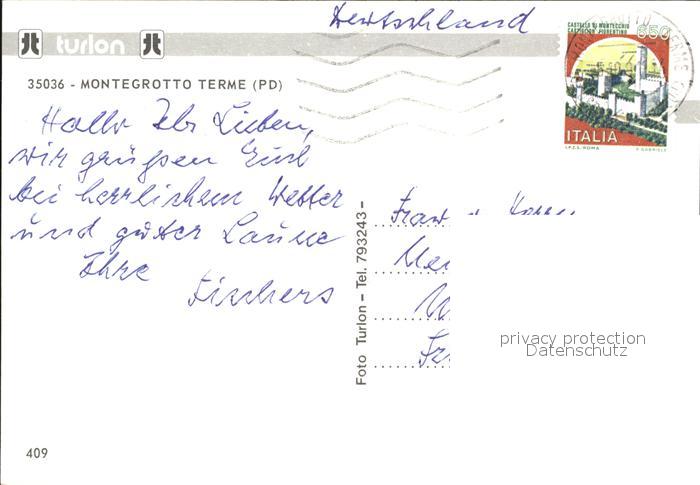 Deutschland
turlon
35036 - MONTEGROTTO TERME (PD)
Hallo Ihr Lieben,
wir grüßen Euch
bei herrlichem Wetter
und guter Laune
Ihre
Fischers
CASTELLO DI MONTECCHIO
CASTIGLION FIORENTINO
650
ITALIA
I.P.Z.S. ROMA
Foto Turlon - Tel. 793243 -
Frau u.
privacy protection
Datenschutz
409